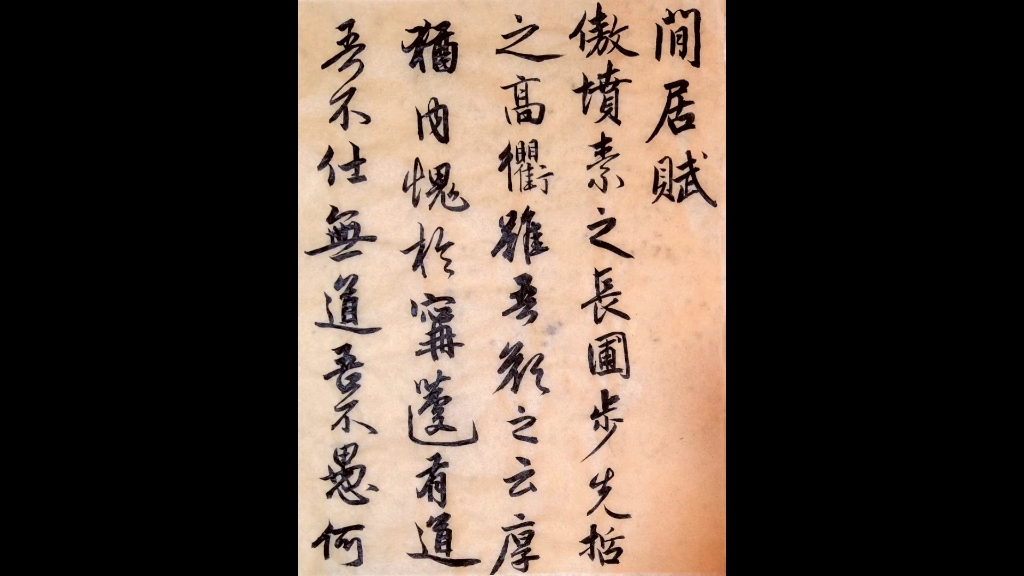 閒居賦
傲墳素之長圃步先哲
之高衢雖吾顏之云厚
猶內愧於寗蘧有道
吾不仕無道吾不愚何